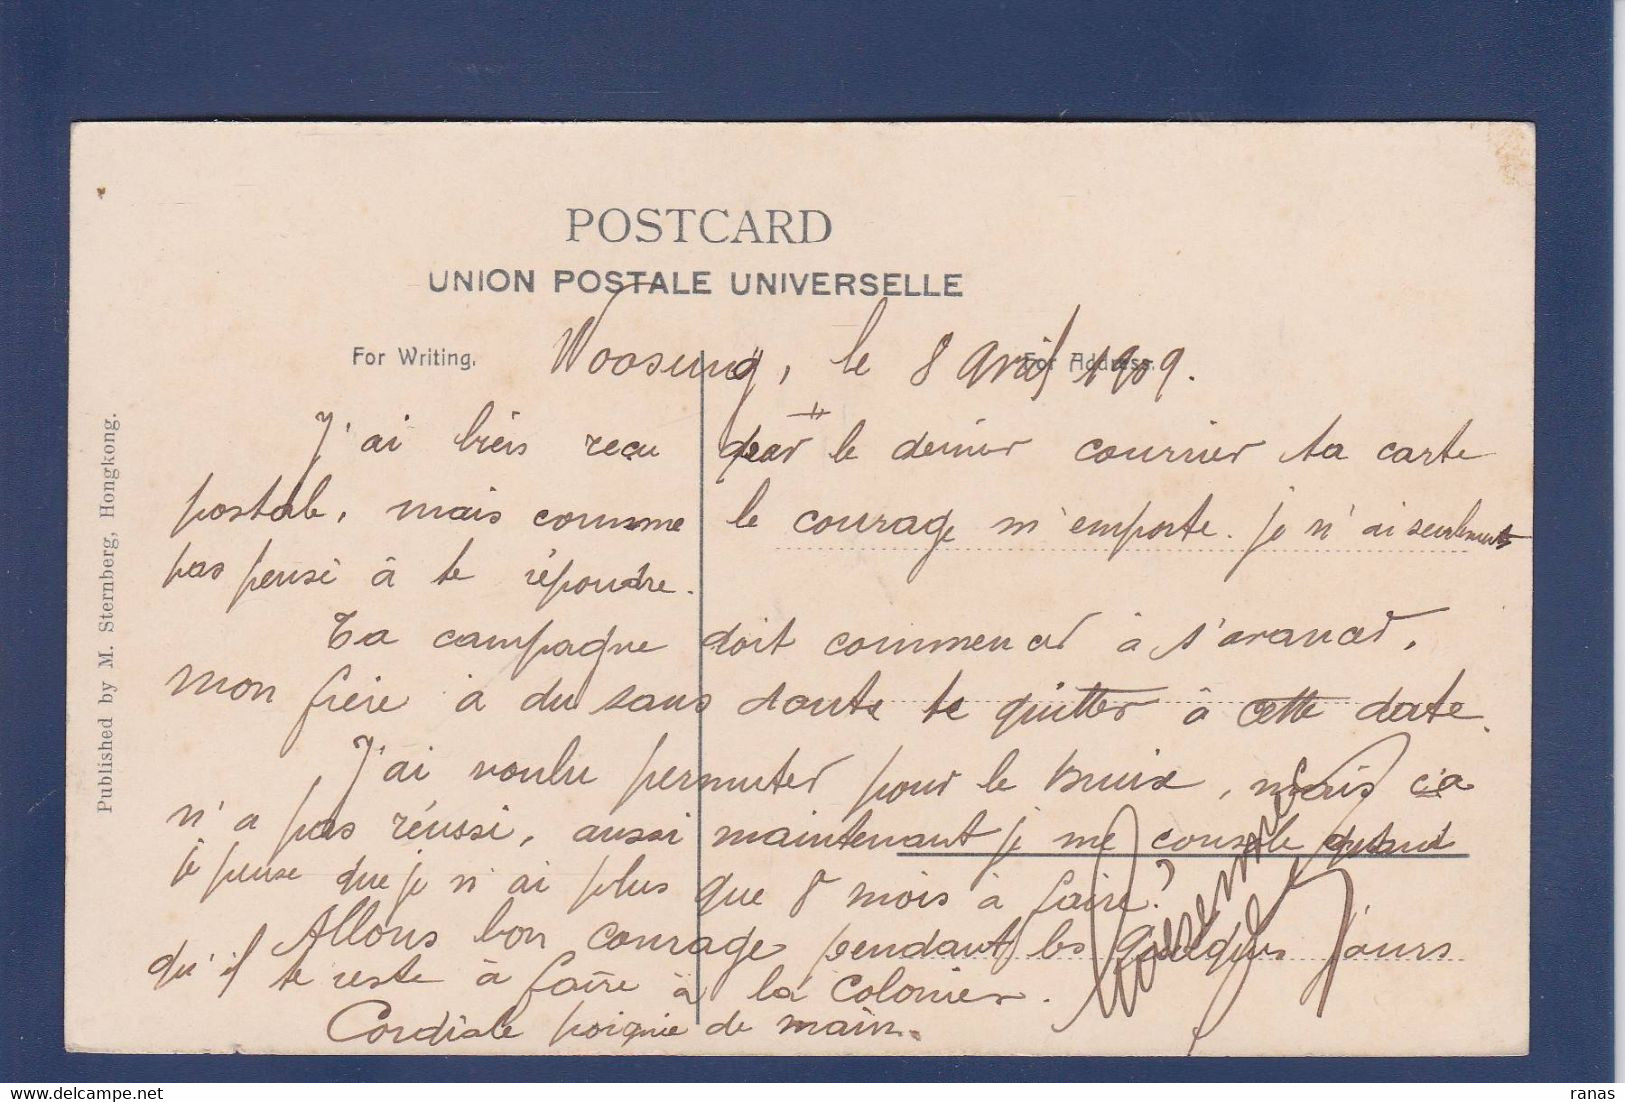 POSTCARD
UNION POSTALE UNIVERSELLE
For Writing.
For Address.
Woosung, le 8 avril 1909.
J'ai bien reçu par le dernier courrier ta carte
postale, mais comme le courage m'emporte. je n'ai seulement
pas pensé à te répondre.
Ta campagne doit commencer à s'avancer.
mon frère a du sans doute te quitter à cette date.
J'ai voulu permuter pour le Bruix, mais ça
n'a pas réussi, aussi maintenant je me console quand
je pense que je n'ai plus que 8 mois à faire.
Allons bon courage pendant les quelques jours
qu'il te reste à faire à la Colonies.
Cordiale poignée de main.
Published by M. Sternberg, Hongkong.
ranas